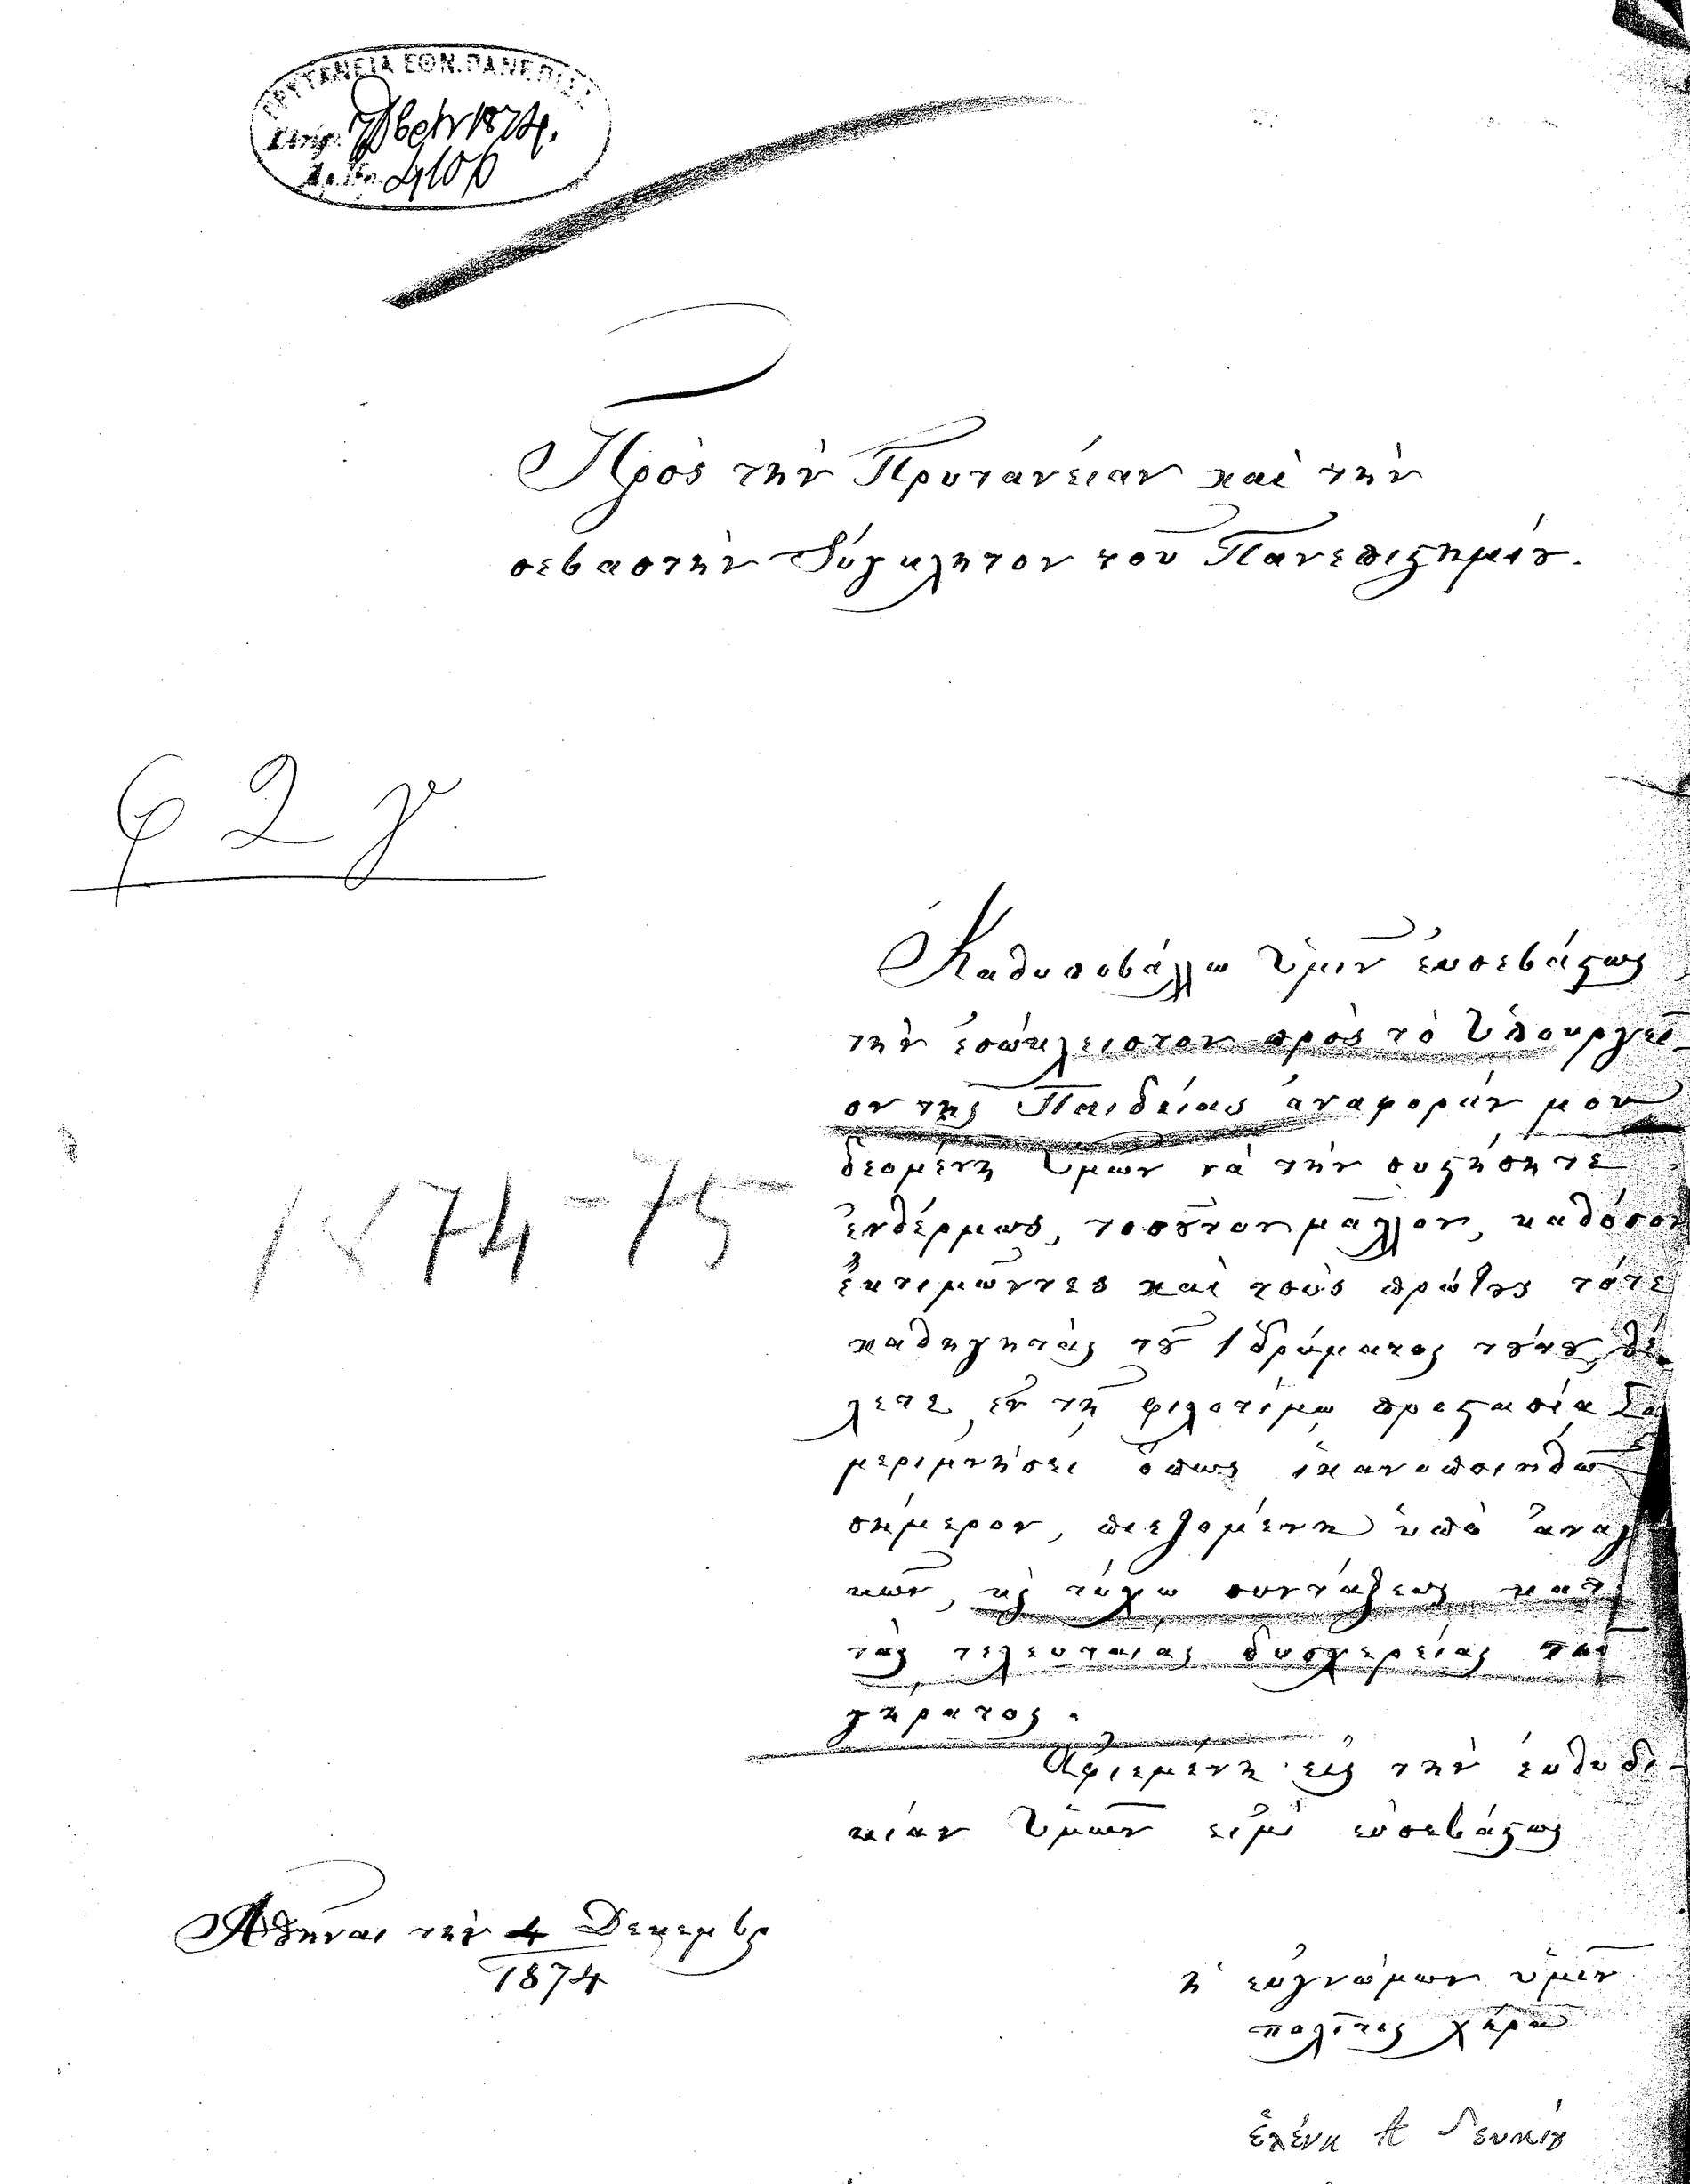 ΠΡΥΤΑΝΕΙΑ ΕΘΝ. ΠΑΝΕΠΙΣΤ
1874.
Πρὸς τὴν Πρυτανείαν καὶ τὴν
σεβαστὴν Σύγκλητον τοῦ Πανεπιϛημίȣ.
φ 2 γ
Καθυποβάλλω Ὑμῖν εὐσεβάϛως
τὴν ἐσώκλειστον πρὸς τὸ Ὑπουργεῖ-
ον τῆς Παιδείας ἀναφοράν μου
δεομένη Ὑμῶν νὰ τὴν συϛήσητε
ἐνθέρμως, τοσȣ̃τον μᾶλλον, καθόσον
ἐκτιμῶντες καὶ τοὺς πρώτȣς τότε
καθηγητὰς τȣ̃ ἱδρύματος τούτȣ θέ
λετε, ἐν τῇ φιλοτίμῳ προϛασίᾳ Σας
μεριμνήσει ὅπως ἱκανοποιηθῶ
σήμερον, πιεζομένη ὑπὸ ἀναγ
κῶν, κỳ τύχω συντάξεως κατὰ
τὰς τελευταίας δυσχερείας τοῦ
γήρατος.
1874-75
Ἀφιεμένη εἰς τὴν εὐθυδι-
κίαν Ὑμῶν εἰμὶ εὐσεβάϛως
Ἀθῆναι τὴν 4 Δεκεμβρ
1874
ἡ εὐγνώμων ὑμῖν
πολῖτις χήρα
Ἑλένη Α Λευκίȣ